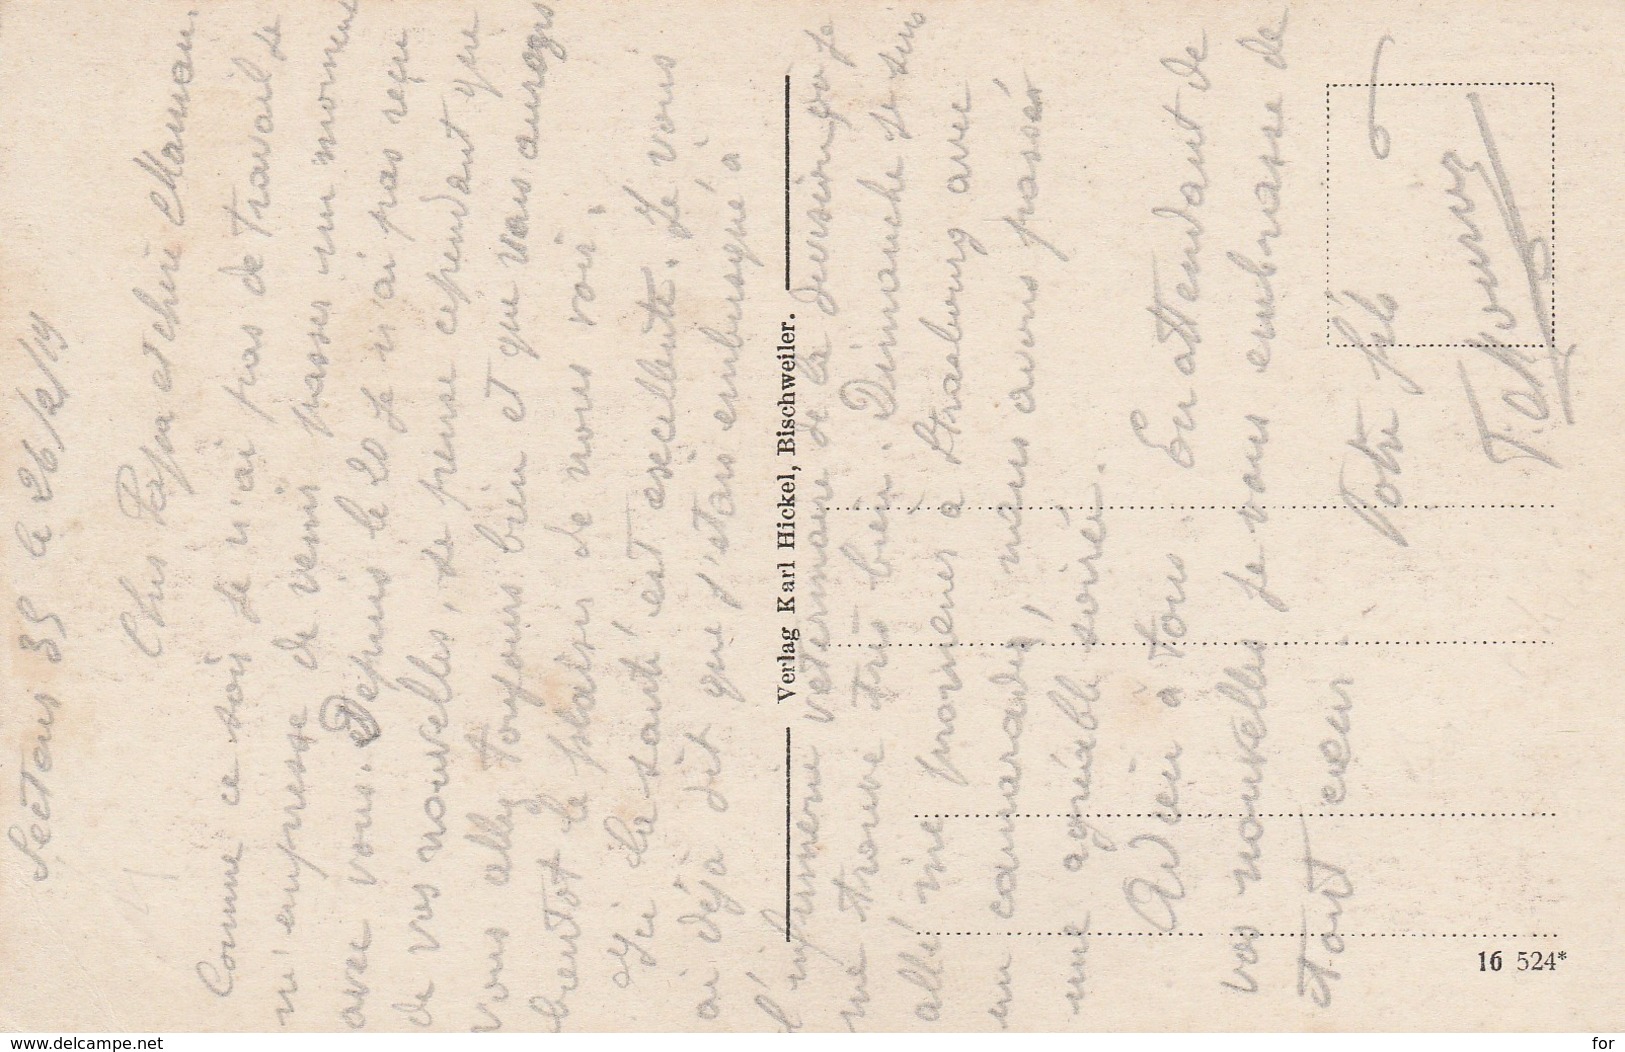 Secteur 35 le 26/2/19
Cher Papa et chère Maman
Comme ce soir je n'ai pas de travail je
m'empresse de venir passer un moment
avec vous. Depuis le 20 je n'ai pas reçu
de vos nouvelles, je pense cependant que
vous allez toujours bien et que vous aurez
bientot le plaisir de nous voir.
Ma santé est excellente. Je vous
ai déja dit que j'etais embusqué a
l'infirmerie veterinaire de la division ou je
me trouve très bien. Dimanche je suis
allé me promener a Strasbourg avec
un camarade, nous avons passer
une agréable soirée.
Adieu a tous. En attendant de
vos nouvelles je vous embrasse de
tout cœur.
Votre fils
Verlag Karl Hickel, Bischweiler.
16 524*
www.delcampe.net
for